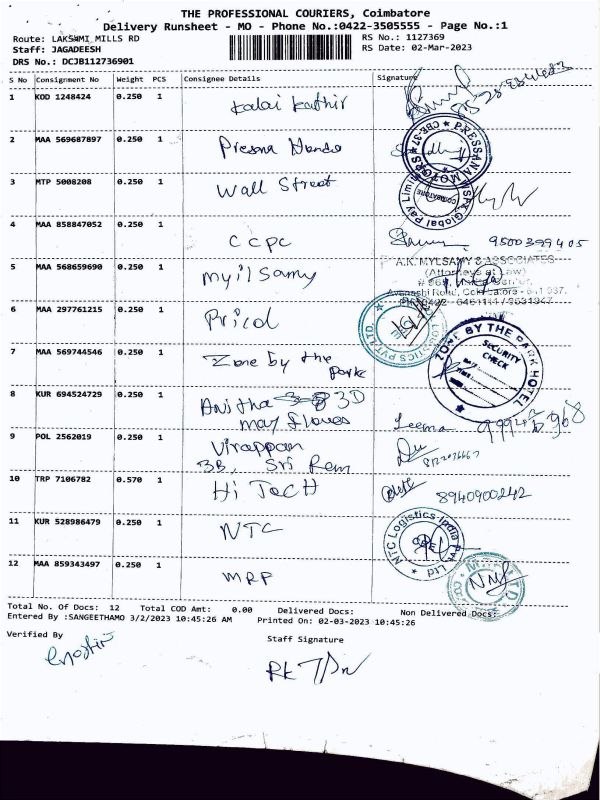 THE PROFESSIONAL COURIERS, Coimbatore
Delivery Runsheet - MO - Phone No.:0422-3505555 - Page No.:1
Route: LAKSHMI MILLS RD
RS No.: 1127369
Staff: JAGADEESH
RS Date: 02-Mar-2023
DRS No.: DCJB112736901
S No Consignment No Weight PCS Consignee Details Signature
1 KOD 1248424 0.250 1 Kalai Kathir
2 MAA 569687897 0.250 1 Presna Honda
PRESSANA MOTORS CBE-37
3 MTP 5008208 0.250 1 Wall Street
Global Pay Limi
COIMBATORE
4 MAA 858847052 0.250 1 CCPC 9500399405
5 MAA 568659690 0.250 1 myilsamy
A.K. MYLSAMY & ASSOCIATES
(Attorneys at Law)
Avanashi Road, Coimbatore - 641 037.
6 MAA 297761215 0.250 1 Pricol
LOGISTICS PVT LTD.
7 MAA 569744546 0.250 1 Zone by the
Park
ZONE BY THE PARK HOTEL
SECURITY
CHECK
8 KUR 694524729 0.250 1 Anitha 3D
may flower
Leema
9 POL 2562019 0.250 1 Virappan
3B, Sri Ram
10 TRP 7106782 0.570 1 Hi Tech 8940900242
11 KUR 528986479 0.250 1 NTC
NTC Logistics India Pvt Ltd
12 MAA 859343497 0.250 1 MRP
Total No. Of Docs: 12 Total COD Amt: 0.00 Delivered Docs: Non Delivered Docs:
Entered By :SANGEETHAMO 3/2/2023 10:45:26 AM Printed On: 02-03-2023 10:45:26
Verified By Staff Signature